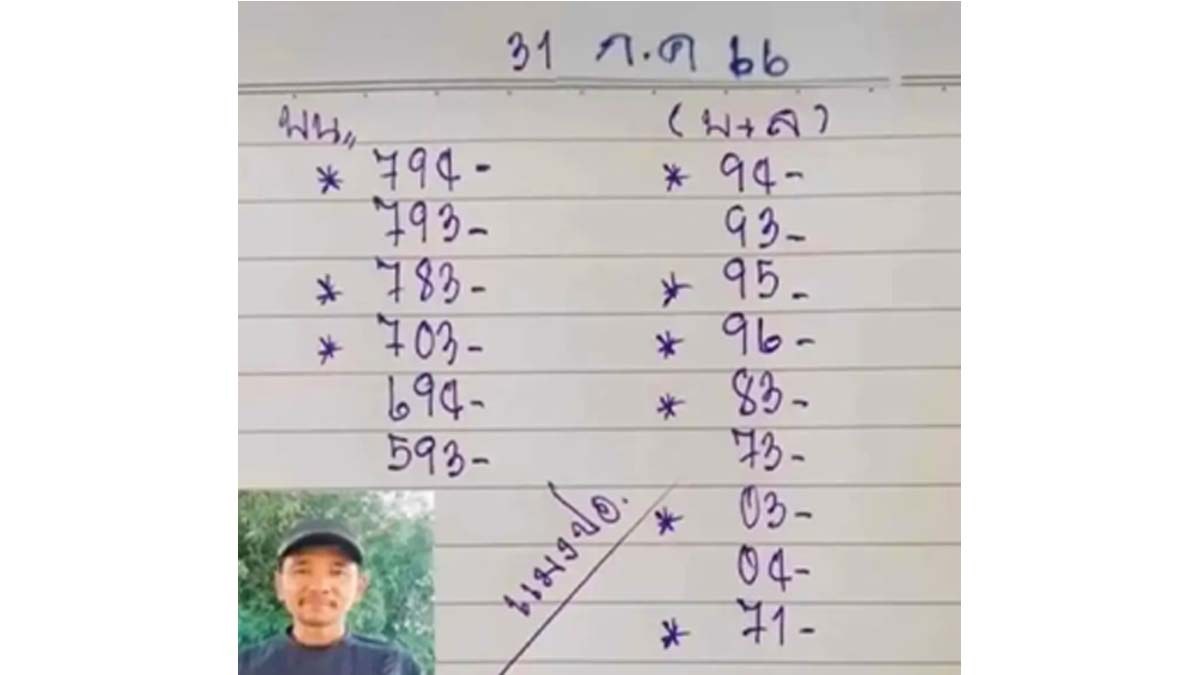 31 ก.ค 66
บน,,
* 794-
793-
* 783-
* 703-
694-
593-
(บ+ล)
* 94-
93-
* 95-
* 96-
* 83-
73-
* 03-
04-
* 71-
แมงปอ.